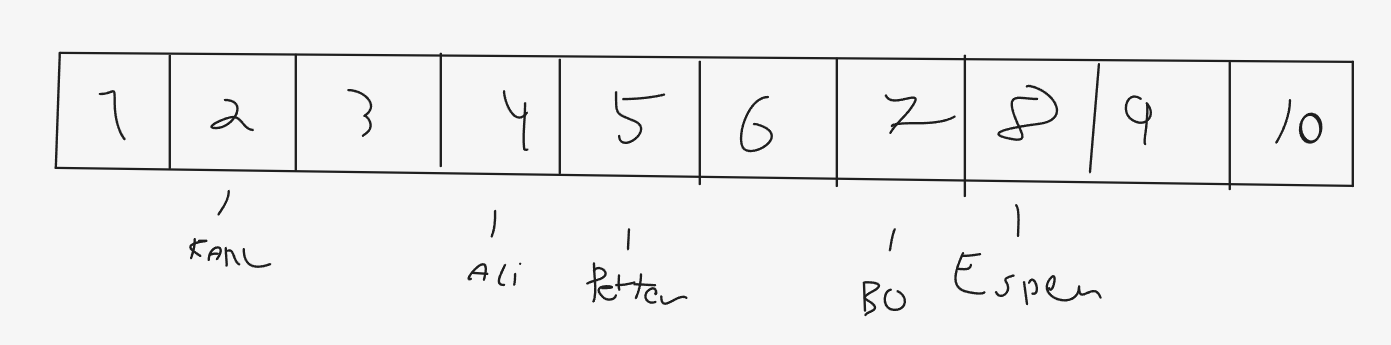 1 2 3 4 5 6 7 8 9 10
Karl Ali Petter BO Espen